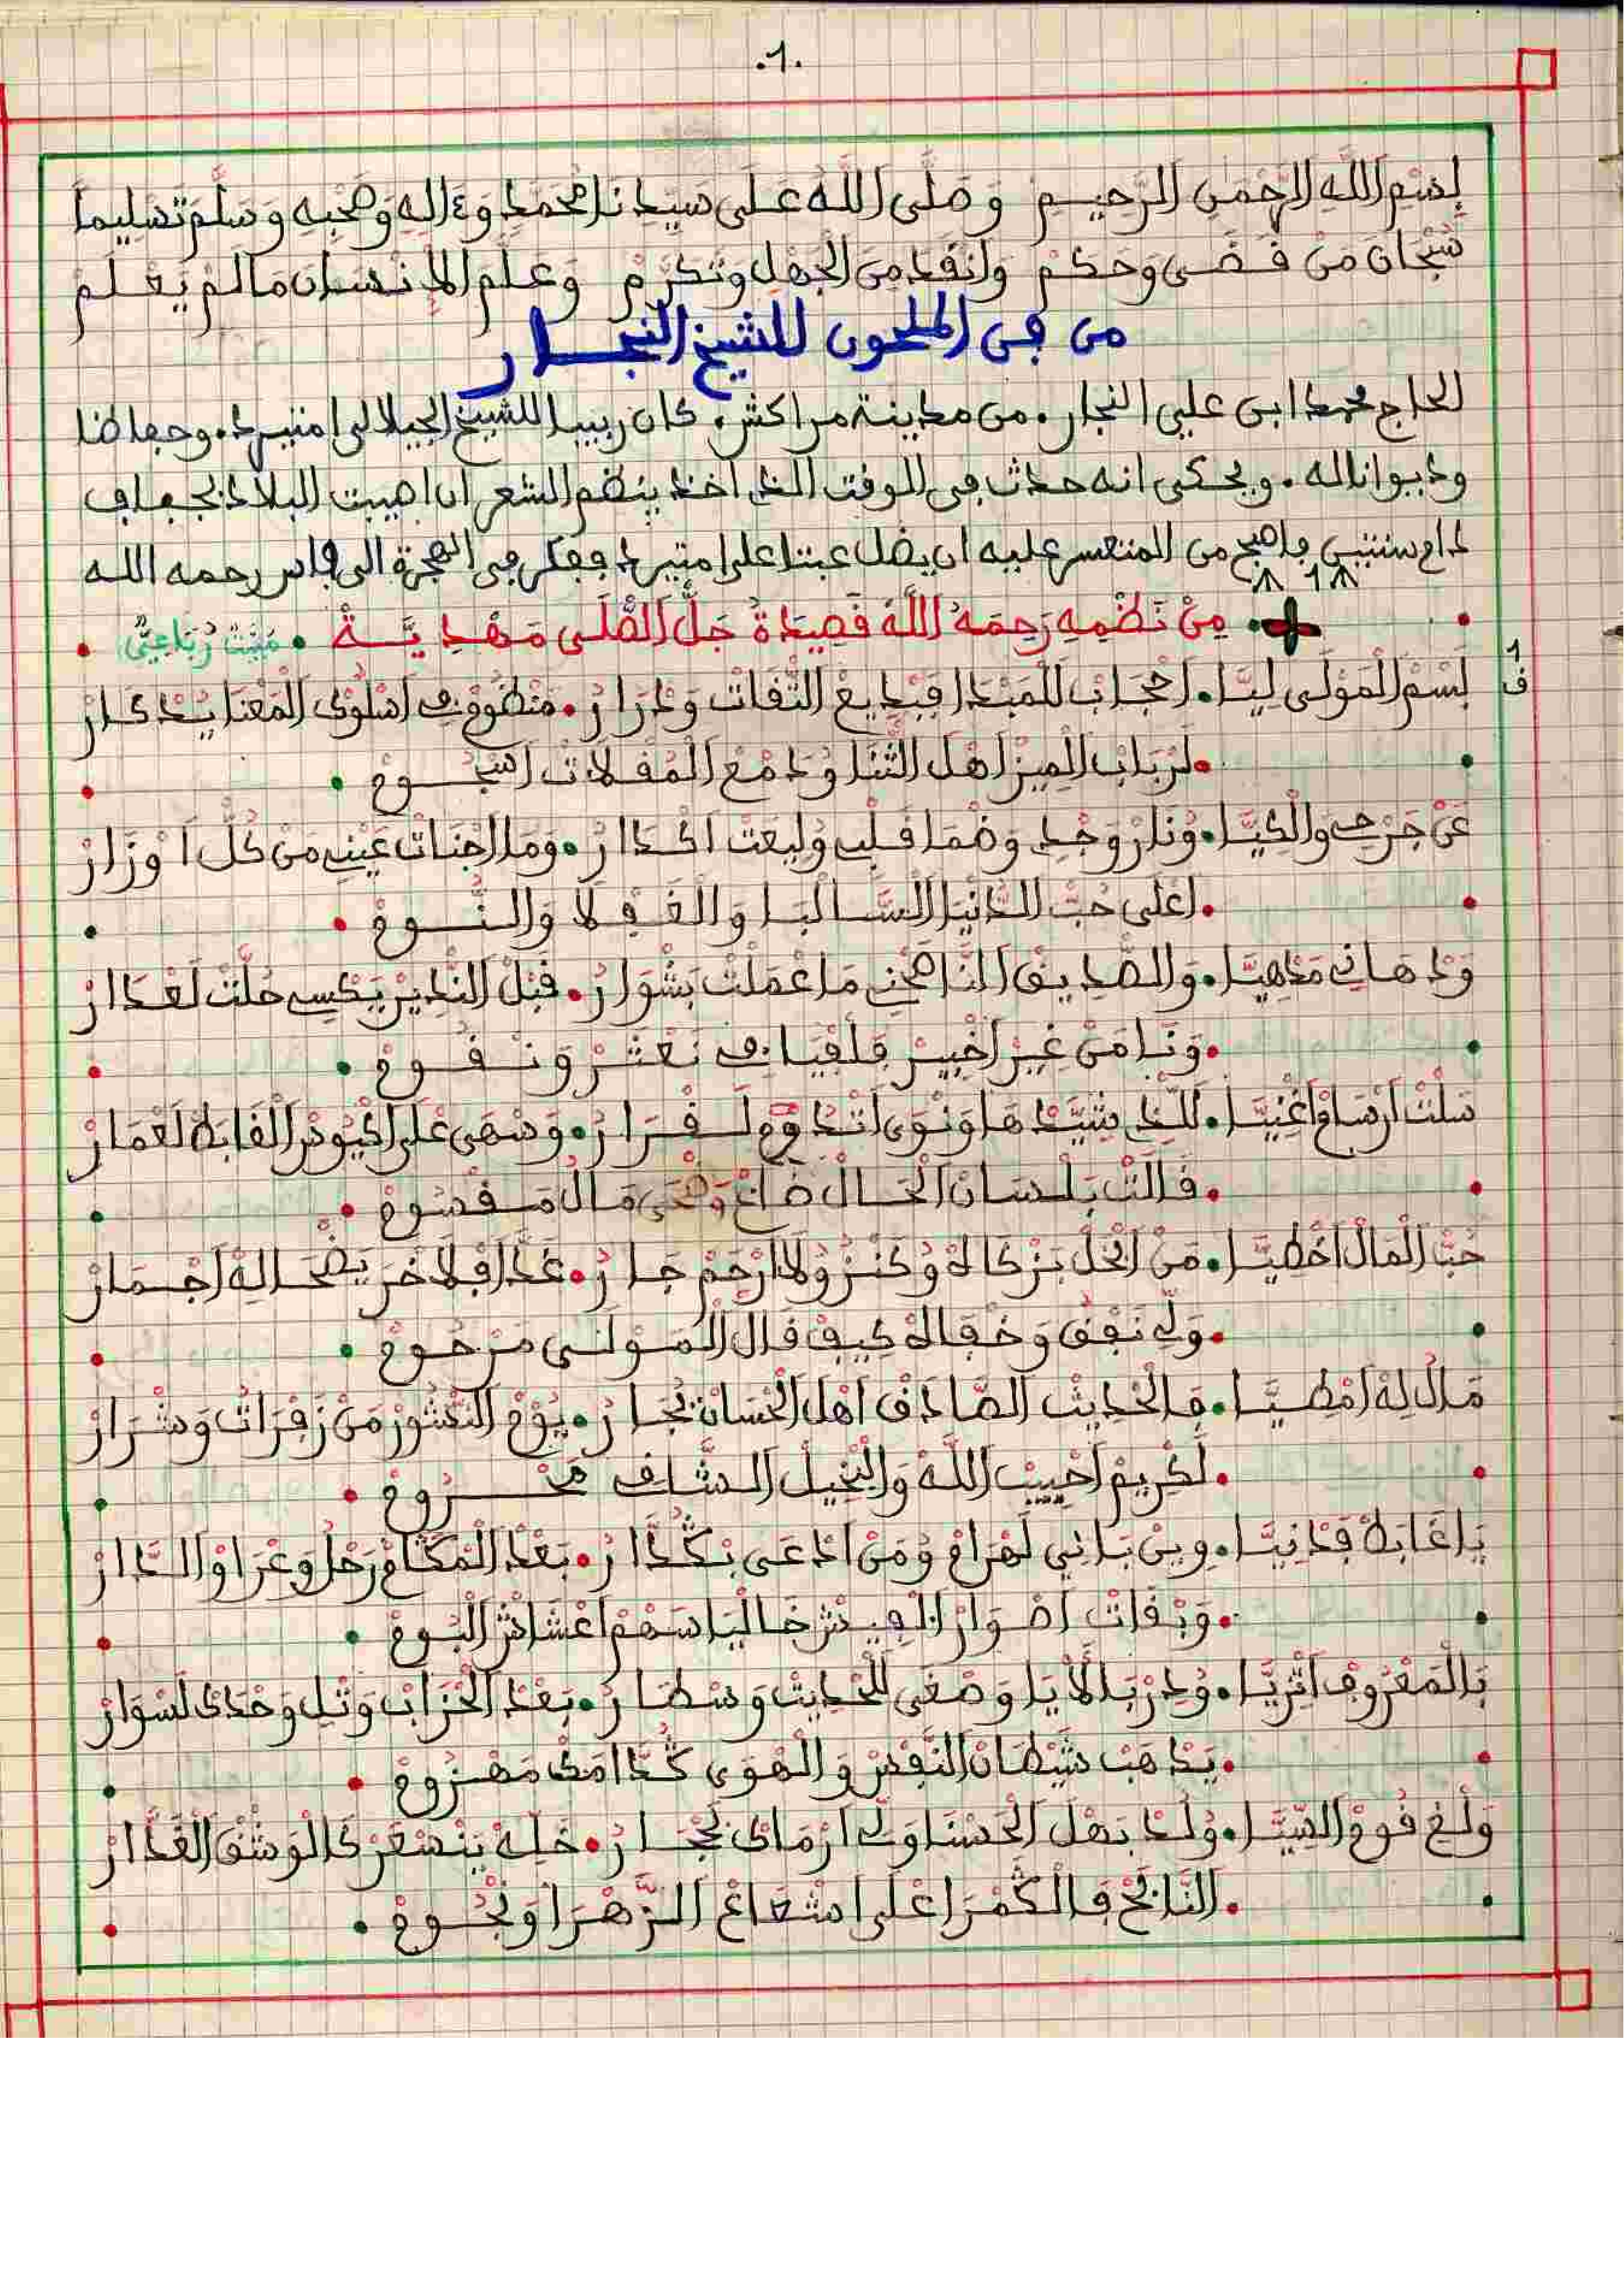 .1.
بِسْمِ اللَّهِ الرَّحْمَنِ الرَّحِيمِ وَصَلَّى اللَّهُ عَلَى سَيِّدِنَا مُحَمَّدٍ وَءَالِهِ وَصَحْبِهِ وَسَلَّمَ تَسْلِيماً
سُبْحَانَ مَنْ قَضَى وَحَكَمْ وَانْقَدَ مِنَ الْجَهْلِ وَتَكَرَّمْ وَعَلَّمَ الْإِنْسَانَ مَا لَمْ يَعْلَمْ
من فن الملحون للشيخ النجار
الحاج محمد ابن علي النجار. من مدينة مراكش. كان ربيبا للشيخ الجيلالي امتيرد. وحفاضا
وديوانا له. ويحكى انه حدث في الوقت الذي اخذ ينظم الشعر ان اصيبت البلاد بجفاف
دام سنتين فاصبح من المتعسر عليه ان يضل عبئا على امتيرد ففكر في الهجرة الى فاس رحمه الله
1
مِنْ نَظْمِهِ رَحِمَهُ اللَّهُ قَصِيدَةُ جَلَّ الصَّلَى مَهْدِيَّةْ • مَبَيَّتْ رُبَاعِيّْ
ف 1
لَسْمْ الْمَوْلَى لِيَّا. احْجَابْ لَلْمَبْدَا فَبْدِيعْ التّْفَاتْ وَدْرَارْ. مَنْظُومْ فِ اسْلُوكْ الْمَعْنَا يُدْكَارْ
لَرْبَابْ الْمِيزْ اهْلْ الثّْنَا وُدَمْعْ الْمُقْلَاتْ اسْجُومْ
عَنْ جَرْحِي وَالْكِيَّا. وُنَارْ وَجْدِي وَضْمَا قَلْبِي وُلِيعْتْ اكْدَارْ. وَمَا اجْنَاتْ عَيْنِي مَنْ كُلّْ اوْزَارْ
اعْلَى حُبّْ الدَّنْيَا السَّالْبَا وَالْغَفْلَا وَالنُّومْ
وَدْهَانِي مَدْهِيَّا. وَالصّْدِيقْ النَّاصَحْنِي مَا عْمَلْتْ بَشْوَارُ. قَبْلْ النّْدِيرْ يَكْسِي حُلّْتْ لَعْدَارْ
وَنَا مَنْ غِيرْ اخْبِيرْ فَلْفْيَافِي نَعْثَرْ وَنْقُومْ
سَلْتْ ارْسَامْ اغْنِيَّا. لَلِّي شَيَّدْهَا وَنْوَى اتْدُومْ لَقْرَارُ. وَسْهَى عْلَى اكْيُوسْ الْقَابَطْ لَعْمَارْ
قَالَتْ بَلْسَانْ الْحَالْ ضَاعْ وَضْحَى مَالُ مَقْسُومْ
حُبّْ الْمَالْ اخْطِيَّا. مَنْ ابْخَلْ بَزْكَاتُه وُكَنْزُ وُلَا ارْحَمْ جَارُ. غَدَّا فْلَاخَرْ يَضْحَا لِهْ اجْمَارْ
وَلِّي نَفَقْ وَخْفَاهْ كِيفْ قَالْ الْمَوْلَى مَرْحُومْ
مَالُ لِهْ امْطِيَّا. فَالْحْدِيثْ الصَّادَقْ اهْلْ الْحْسَانْ تُجَّارُ. يُومْ النّْشُورْ مَنْ زَفْرَاتُ وَشْرَارْ
لَكْرِيمْ احْبِيبْ اللَّهْ وَالْبْخِيلْ الشَّافِي مَحْرُومْ
يَا غَابَطْ فَدْنِيَّا. وِينْ بَانِي لَهْرَامْ وُمَنْ ادْعَى بْكُدَّارُ. بَعْدْ الْمُكَامْ رَحْلُو وَعْرَاوْ الدَّارْ
وَبْقَاتْ اصْوَارْ الْعِيشْ خَالْيَا سَهْمْ اعْشَاشْ الْبُومْ
بَالْمَعْرُوفْ اثْرِيَّا. وُدِرْ بَالْأَيَا وَصْغَى لَلْحْدِيثْ وَسْطَارُ. بَعْدْ الْحْزَابْ وَتْلِي وَحْدَكْ لَسْوَارْ
يَدْهَبْ شَيْطَانْ النَّفْسْ وَالْهْوَى كُدَّامَكْ مَهْزُومْ
وَلْغِي قُومْ السِّيَّا. وُلُدْ بَهْلْ الْحَسْنَا وَلِي ارْمَاكْ بَحْجَارُ. خَلِّهْ يَنْسْعَرْ كَالْوَشْقْ الْغَدَّارْ
النَّابَحْ فَالْكَمْرَا عْلَى اشْعَاعْ الزَّهْرَا وَنْجُومْ